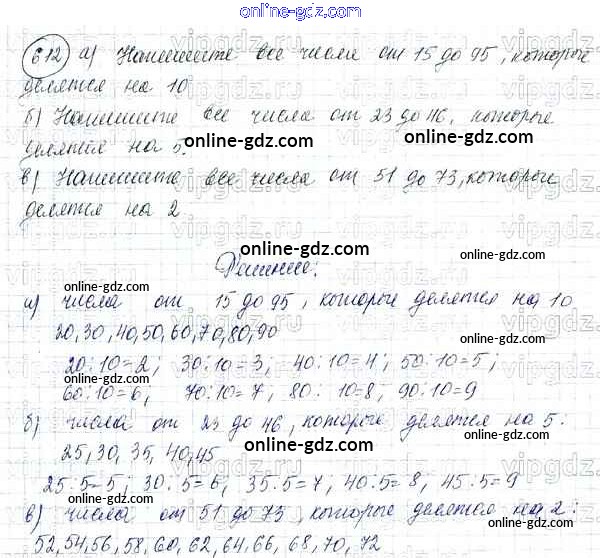 online-gdz.com
612 а) Напишите все числа от 15 до 95, которые
делятся на 10
б) Напишите все числа от 23 до 46, которые
делятся на 5.
online-gdz.com online-gdz.com
в) Напишите все числа от 51 до 73, которые
делятся на 2
online-gdz.com
Решение:
online-gdz.com online-gdz.com
а) числа от 15 до 95, которые делятся на 10
20, 30, 40, 50, 60, 70, 80, 90
online-gdz.com
20:10=2; 30:10=3; 40:10=4; 50:10=5;
60:10=6; 70:10=7; 80:10=8; 90:10=9
online-gdz.com online-gdz.com
б) числа от 23 до 46, которые делятся на 5:
25, 30, 35, 40, 45
online-gdz.com
25:5=5; 30:5=6; 35:5=7; 40:5=8; 45:5=9
online-gdz.com online-gdz.com
в) числа от 51 до 73, которые делятся на 2:
52, 54, 56, 58, 60, 62, 64, 66, 68, 70, 72
online-gdz.com